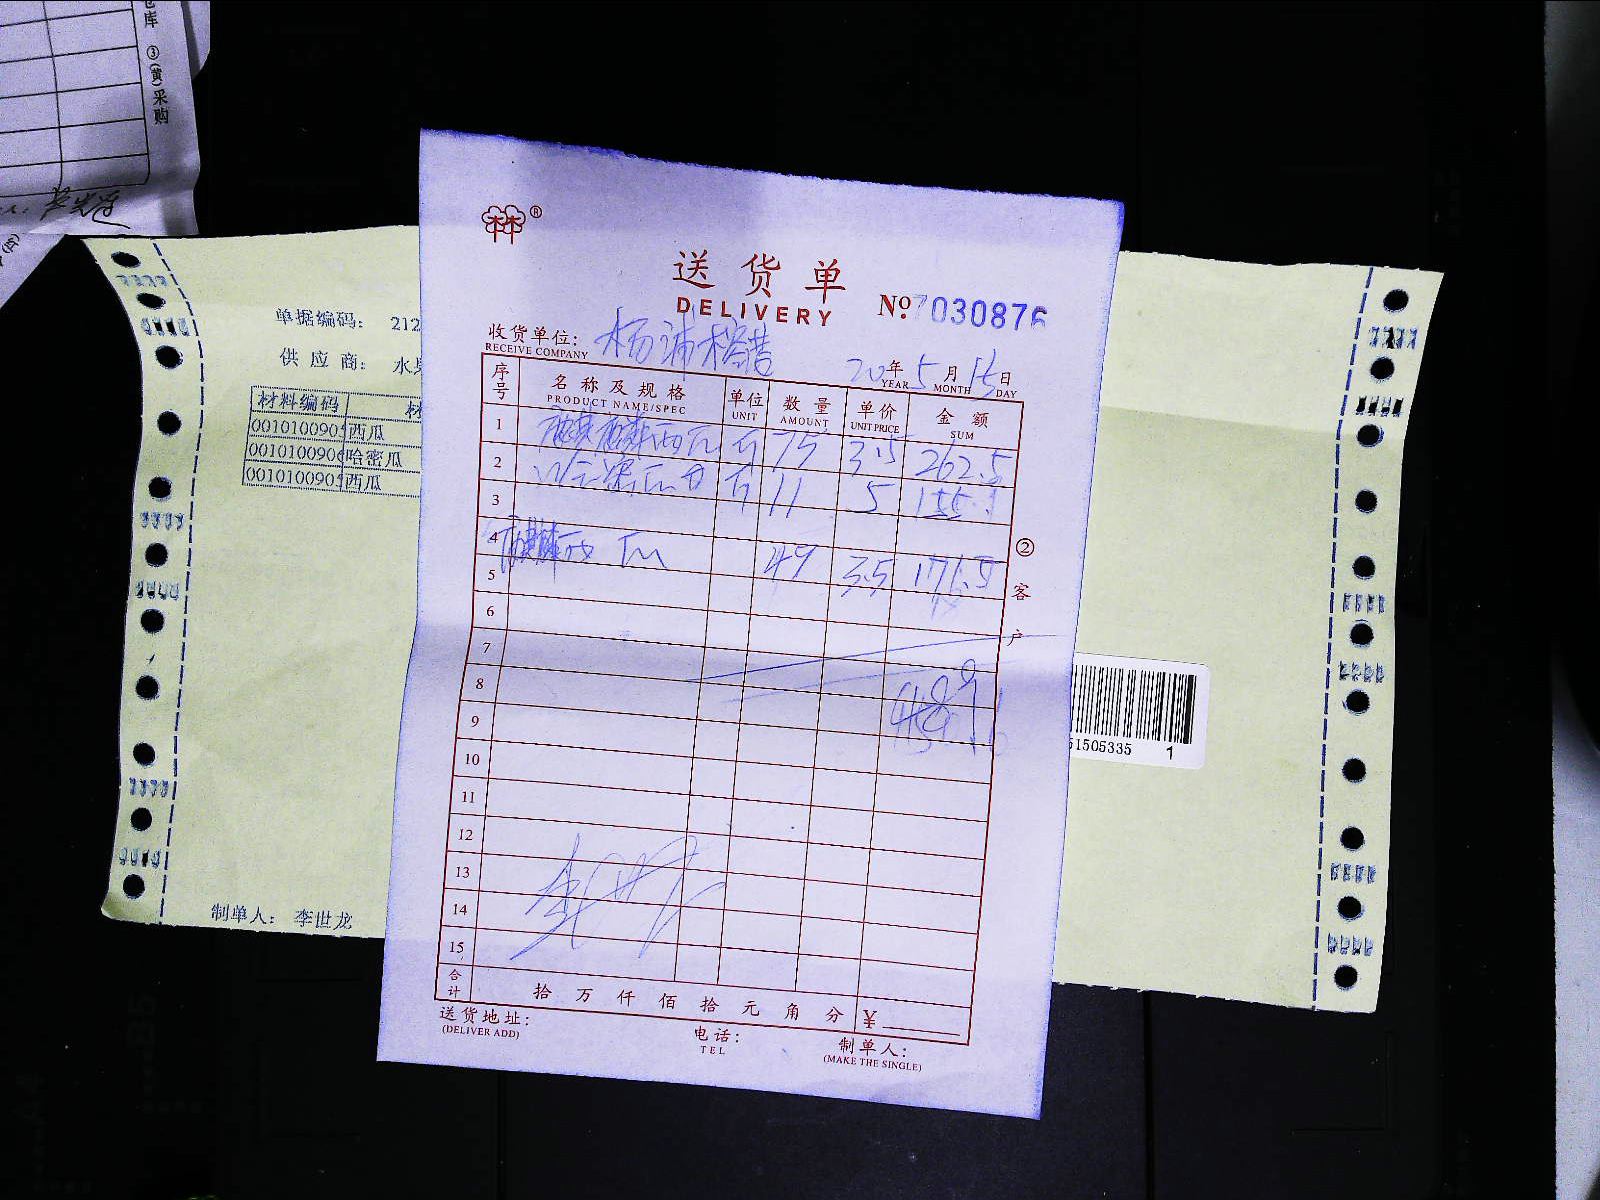 库 ③(黄)采购
®
送货单
DELIVERY
№ 7030876
收货单位: 杨浦
RECEIVE COMPANY
20年5月15日
YEAR MONTH DAY
序号 名称及规格 单位 数量 单价 金额
PRODUCT NAME/SPEC UNIT AMOUNT UNIT PRICE SUM
1 麒麟西瓜 斤 75 3.5 262.5
2 斤 11 5
3
4 麒麟西瓜 49 3.5
5
6
7
8
9
10
11
12
13
14
15
合计 拾万仟佰拾元角分 ¥
送货地址:
(DELIVER ADD)
电话:
TEL
制单人:
(MAKE THE SINGLE)
②客户
单据编码: 212
供应商: 水
材料编码 材
西瓜
哈密瓜
西瓜
制单人: 李世龙
51505335 1